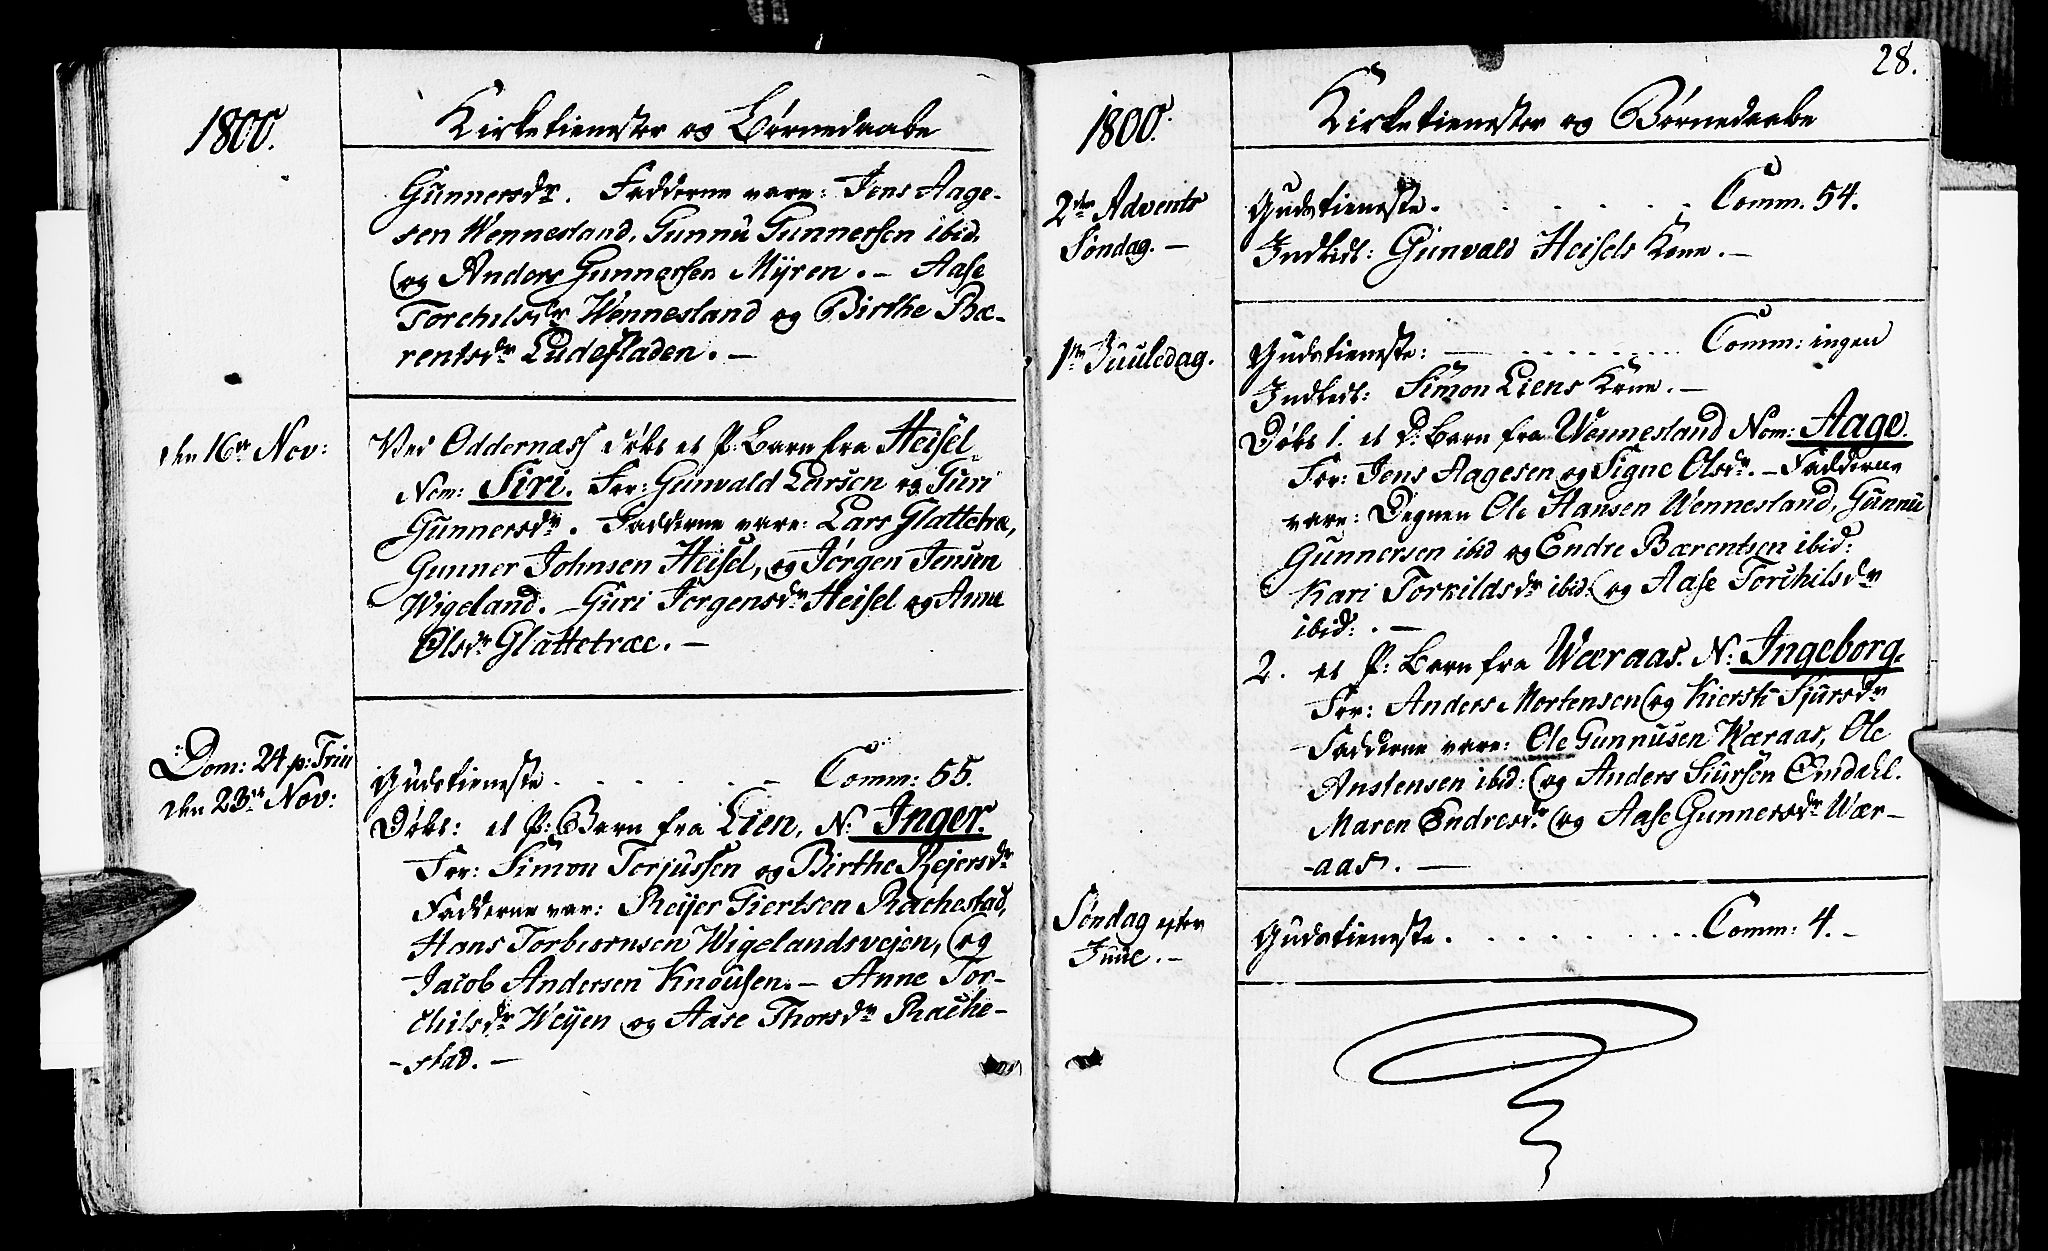 1800.
Kirketienester og Børnedaabe
Gunnersdr. Fadderne vare: Jens Aage-
sen Wennesland, Gunnu Gunnersen ibid,
og Anders Gunnersen Myren. - Aase
Torchilsdr Wennesland og Birthe Bæ-
rentsdr Ludefladen. -
den 16de Nov:
Ved Oddernæss døbt et P: Barn fra Heisel
Nom: Siri. For: Gunvald Larsen og Guri
Gunnersdr. Fadderne vare: Lars Glattetræ,
Gunner Johnsen Heisel, og Jørgen Jensen
Wigeland. - Guri Jørgensdr Heisel og Anne
Olsdr Glattetræe. -
Dom: 24 p: Trin
den 23de Nov:
Gudstieneste. . . . . . - Comm: 55.
Døbt: et P: Barn fra Lien, N: Inger.
For: Simon Torjussen og Birthe Rejersdr
Fadderne var: Reijer Tiertsen Rachestad,
Hans Torbiørnsen Wigelandsvejen, og
Jacob Andersen Knousen. - Anne Tor-
chilsdr Weyen og Aase Thorsdr Rache-
-stad. -
28.
1800.
Kirketienester og Børnedaabe
2den Advents
Søndag. -
Gudstieneste. . . . . . . Comm. 54.
Indledt: Gunvald Heisels Kone. -
1ste Juuledag.
Gudstieneste: - . . . . . . . Comm: ingen
Indledt: Simon Liens Kone. -
Døbt 1. et D: Barn fra Wennesland Nom: Aage.
For: Jens Aagesen og Signe Olsdr. - Fadderne
vare: Degnen Ole Hansen Wennesland, Gunnu
Gunnersen ibid og Endre Bærentsen ibid:
Kari Torkildsdr ibid: og Aase Torchilsdr
ibid: . -
2. et P: Barn fra Wæraas. N: Ingeborg.
For: Anders Mortensen og Kiersti Sjursdr
Fadderne vare: Ole Gunnusen Wæraas, Ole
Anstensen ibid: og Anders Siursen Omdahl.
Maren Endresdr og Aase Gunnersdr Wær-
-aas. -
Søndag efter
Juul. -
Gudstieneste. . . . . . . . . Comm: 4. -